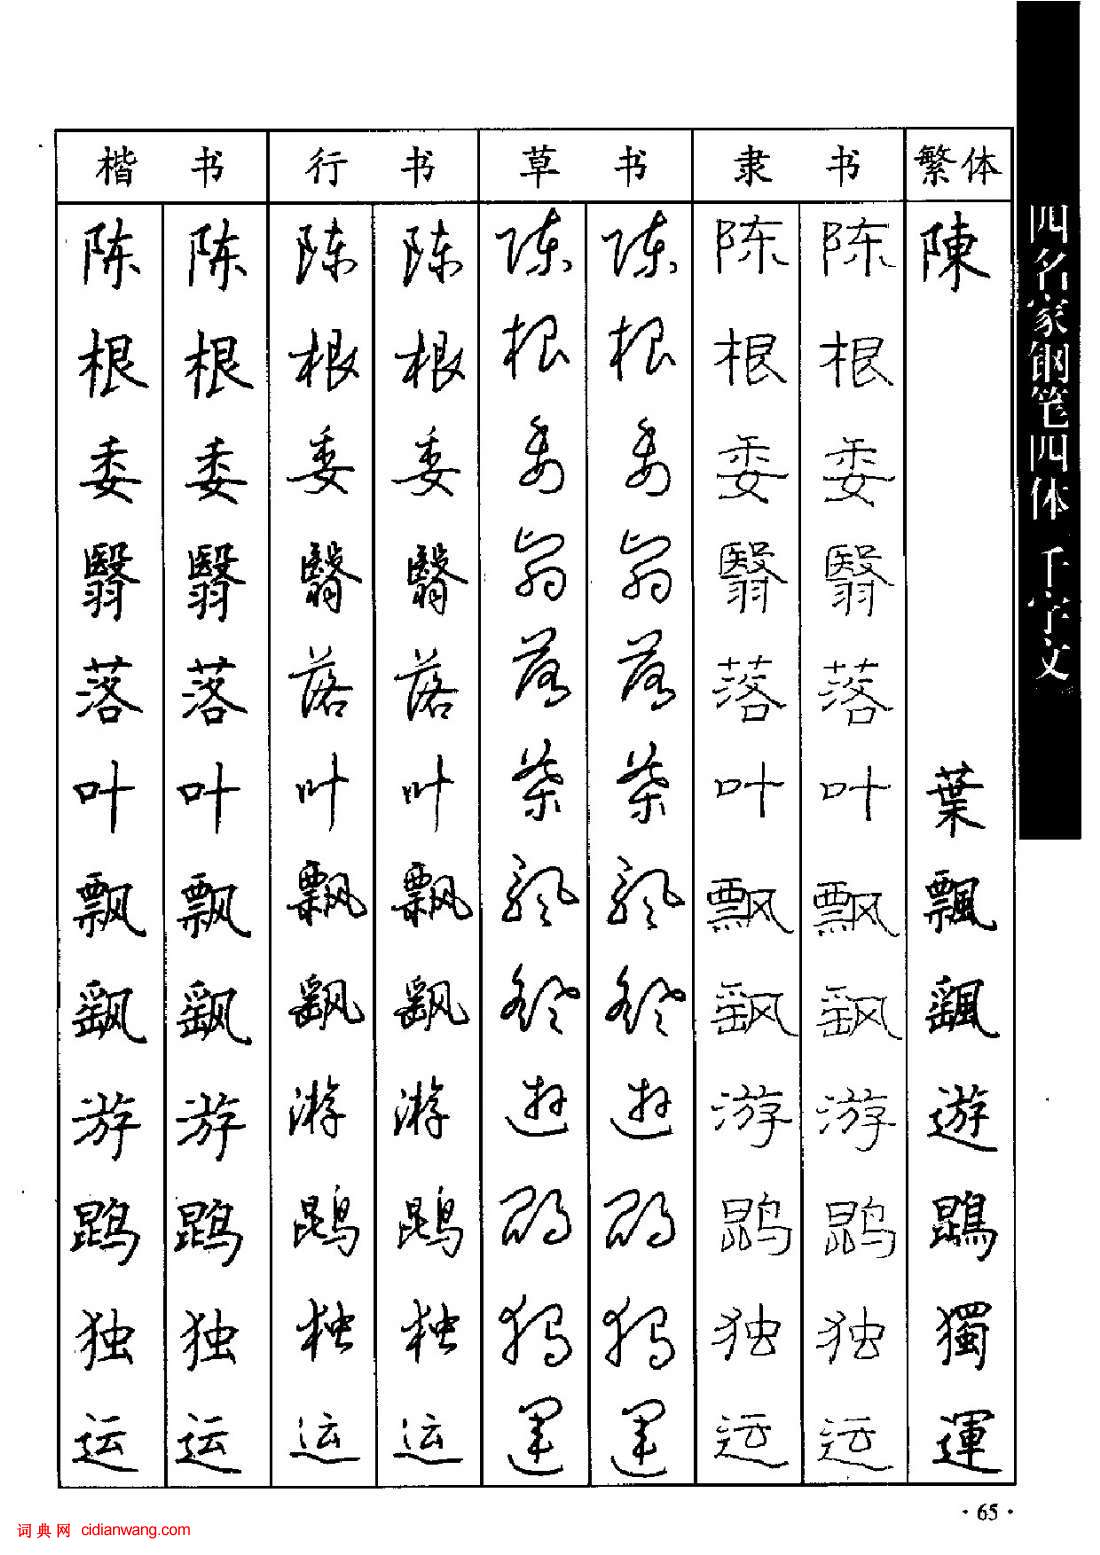 四名家钢笔四体 千字文
楷 书 行 书 草 书 隶 书 繁体
陈 陈 陈 陈 陈 陈 陈 陈 陳
根 根 根 根 根 根 根 根
委 委 委 委 委 委 委 委
翳 翳 翳 翳 翳 翳 翳 翳
落 落 落 落 落 落 落 落
叶 叶 叶 叶 葉 葉 叶 叶 葉
飘 飘 飘 飘 飘 飘 飘 飘 飄
飖 飖 飖 飖 飖 飖 飖 飖 颻
游 游 游 游 遊 遊 游 游 遊
鹍 鹍 鹍 鹍 鹍 鹍 鹍 鹍 鵾
独 独 独 独 独 独 独 独 獨
运 运 运 运 運 運 运 运 運
·65·
词典网 cidianwang.com